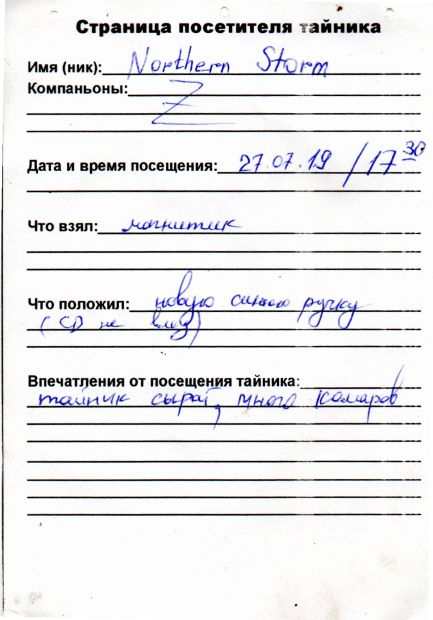 Страница посетителя тайника
Имя (ник): Northern Storm
Компаньоны: Z
Дата и время посещения: 27.07.19 / 17 30
Что взял: магнитик
Что положил: новую синюю ручку
(CD не влез)
Впечатления от посещения тайника:
тайник сырой, много комаров